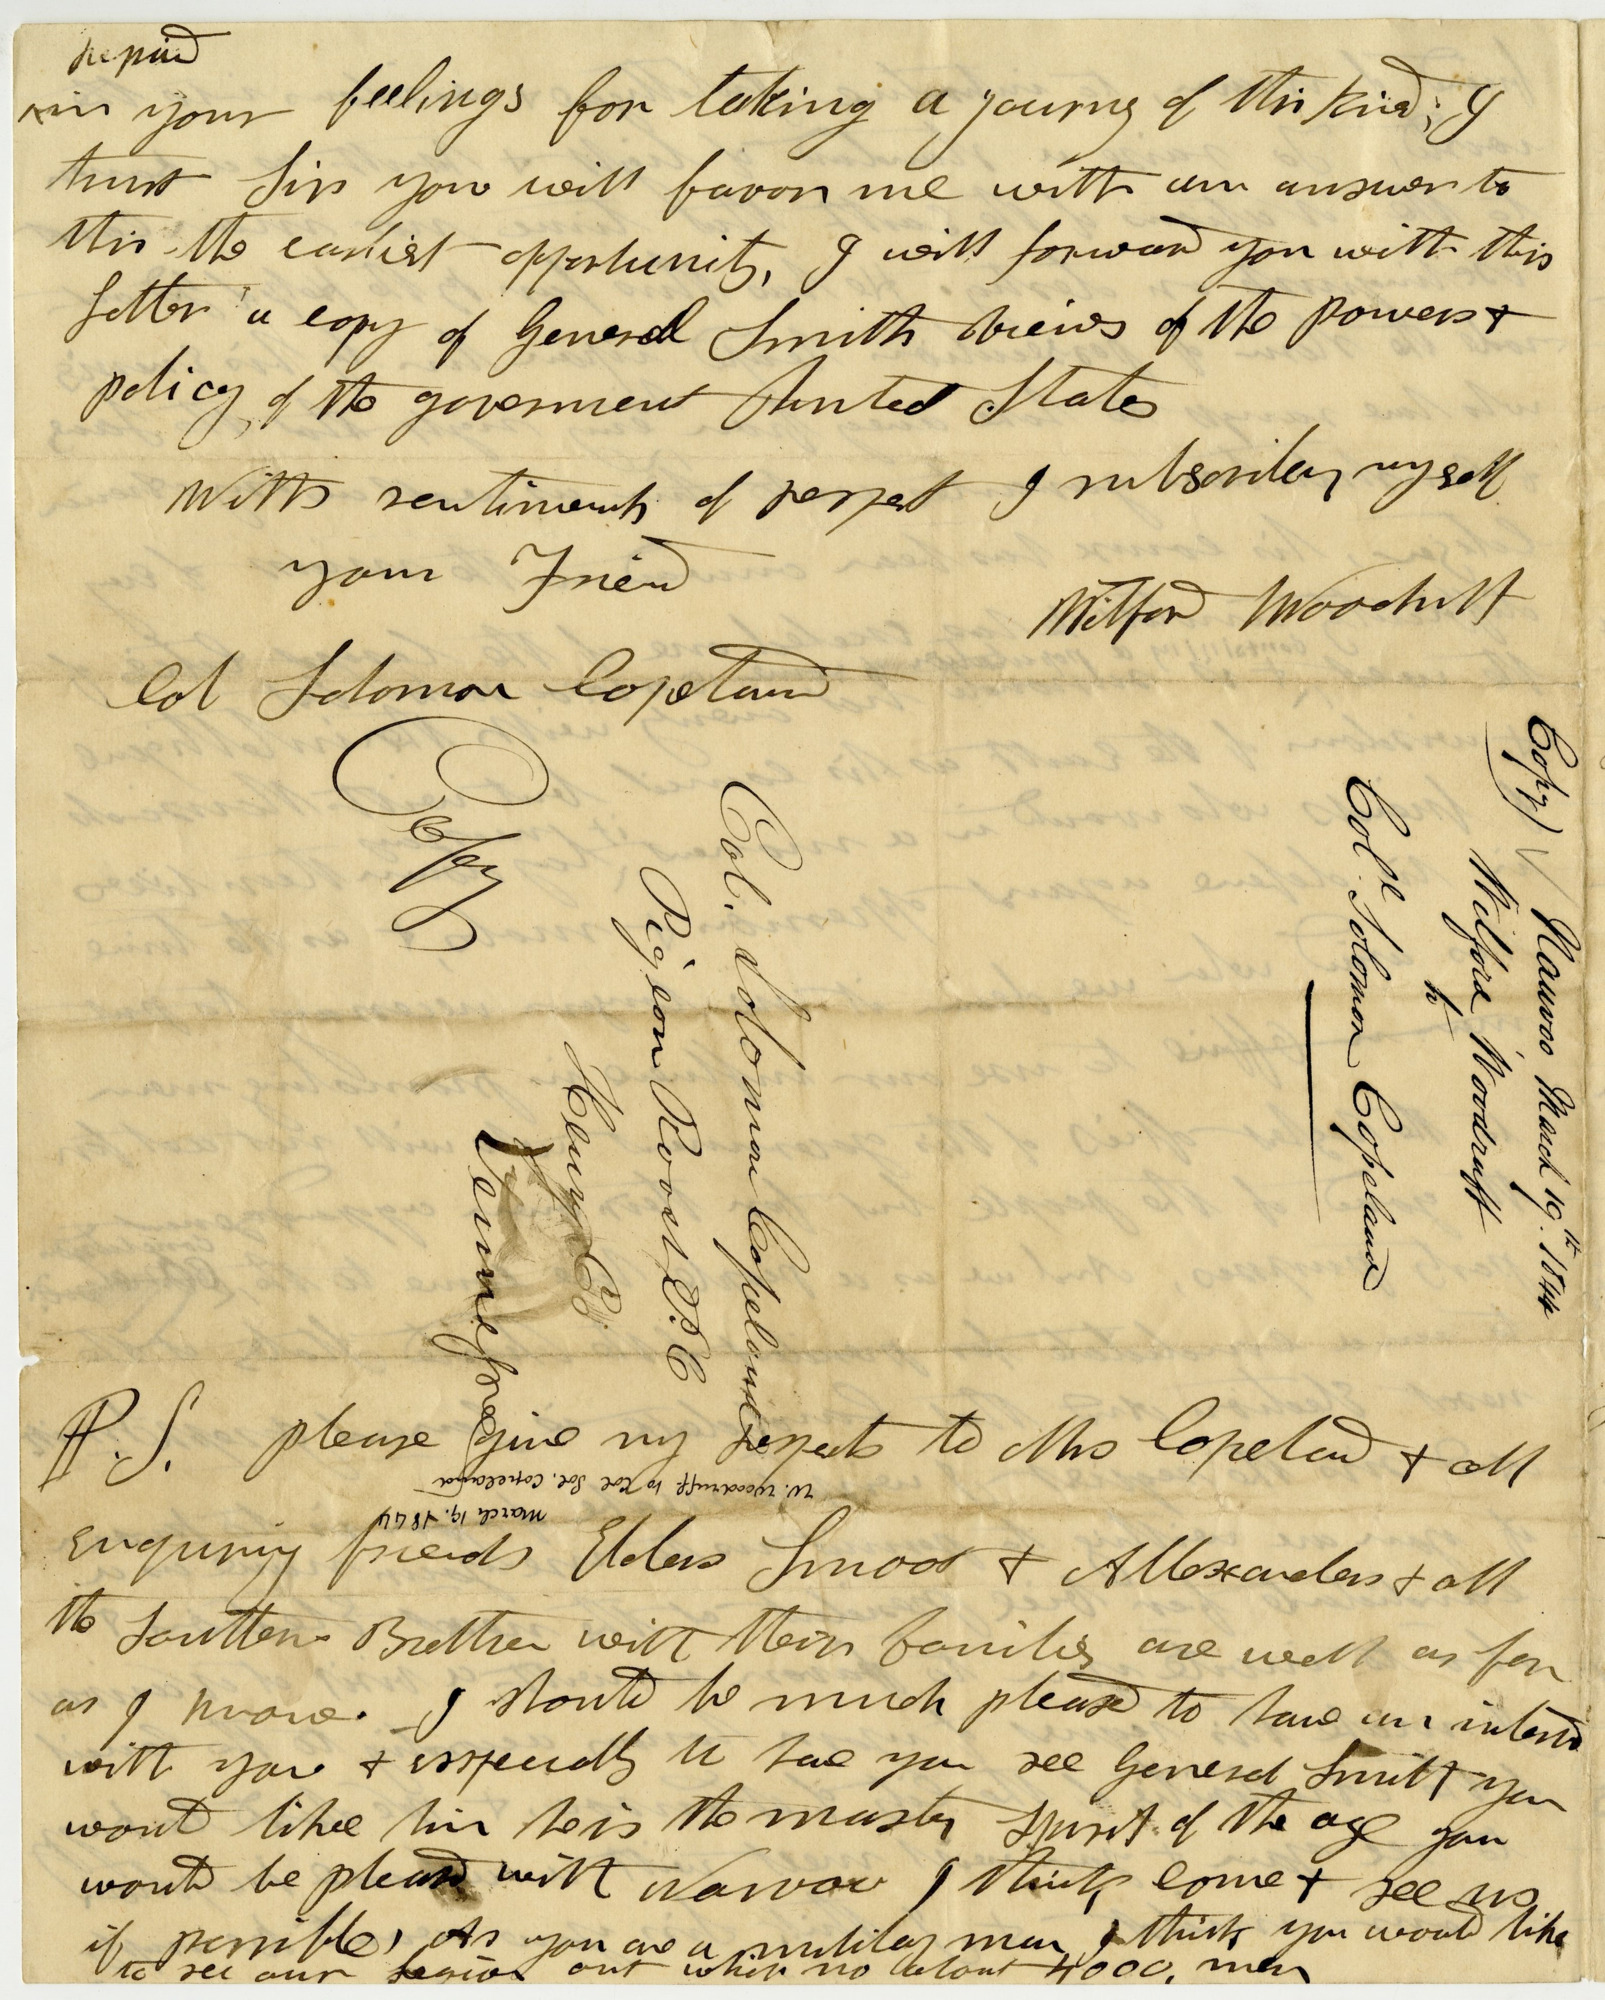 repaid
in your feelings for taking a journy of this kind; I
trust Sir you will favor me with an answer to
this the earliest opportunity, I will forward you with this
letter a copy of General Smiths views of the powers &
policy of the goverment United States
With sentiments of respect I subscribe myself
your Friend
Wilford Woodruff
Col Solomon Copeland
Copy
Col. Solomon Copeland
Pigeon Roost P.C
Henry Co.
Tennessee
Copy) Nauvoo March 19th. 1844
Wilford Woodruff
to
Col. Solomon Copeland
P.S. please give my respects to Mrs Copeland & all
W. Woodruff to Col Sol. Copeland
March 19. 1844
enquiring friends Elders Smoot & Allexander & all
the Southern Brethren with their families are well as far
as I know. I should be much pleased to have an
with you & especially to have you see General Smith you
would like him he is the master spirit of the age you
would be pleasd with Nauvoo I think come & see us
if possible, As you are a military man I think you would like
to see our legion out which no about 4000, men